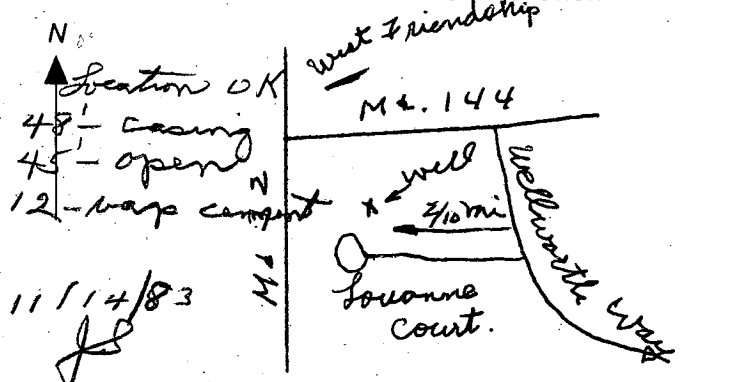 N
Location OK
48' - casing
45' - open
12 - bags cement
11/14/83
West Friendship
Md. 144
well
2/10 mi
Wellworth Way
Louanne
Court.
Md